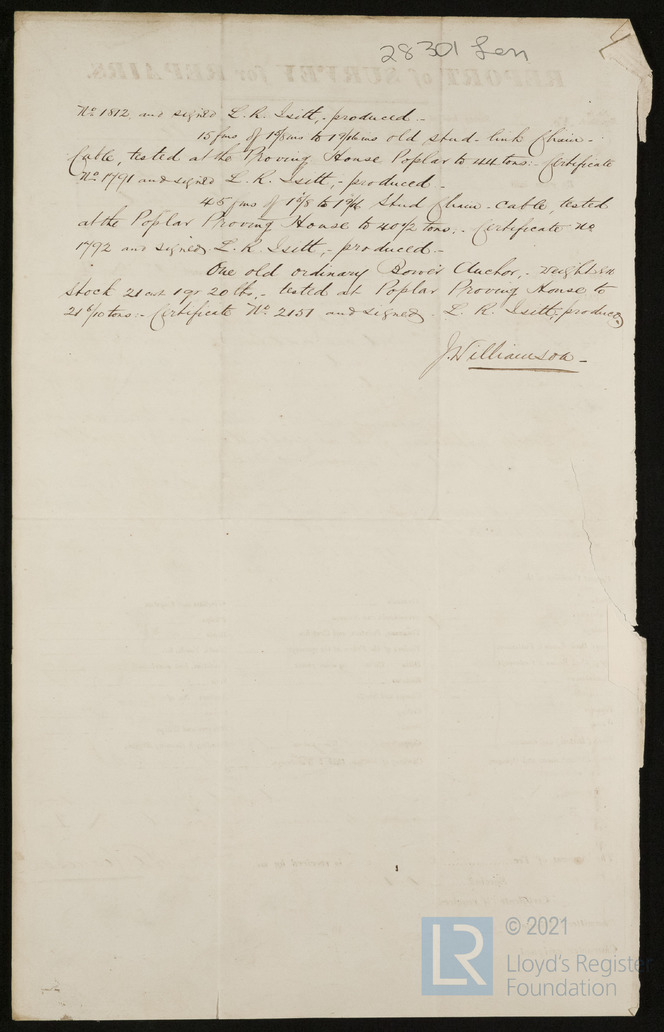 28301 Lon
REPORT of SURVEY for REPAIRS.
No 1812, and signed L. R. Isitt, - produced. -
15 fms of 1 9/8 ins to 1 9/16 ins old stud-link Chain -
Cable, tested at the Proving House Poplar to 44 tons: - Certificate
No 1791 and signed L. R. Isitt, - produced -
45 fms of 1 5/8 to 1 9/16 Stud Chain-cable, tested
at the Poplar Proving House to 40 1/2 tons; - Certificate No
1792 and signed L. R. Isitt, - produced -
One old ordinary Bower Anchor, - weight ex
Stock 21 cwt 1 qr 20 lbs, - tested at Poplar Proving House to
21 6/10 tons: - Certificate No 2151 and signed L. R. Isitt, - produced
J. Williamson -
LR
© 2021
Lloyd's Register
Foundation